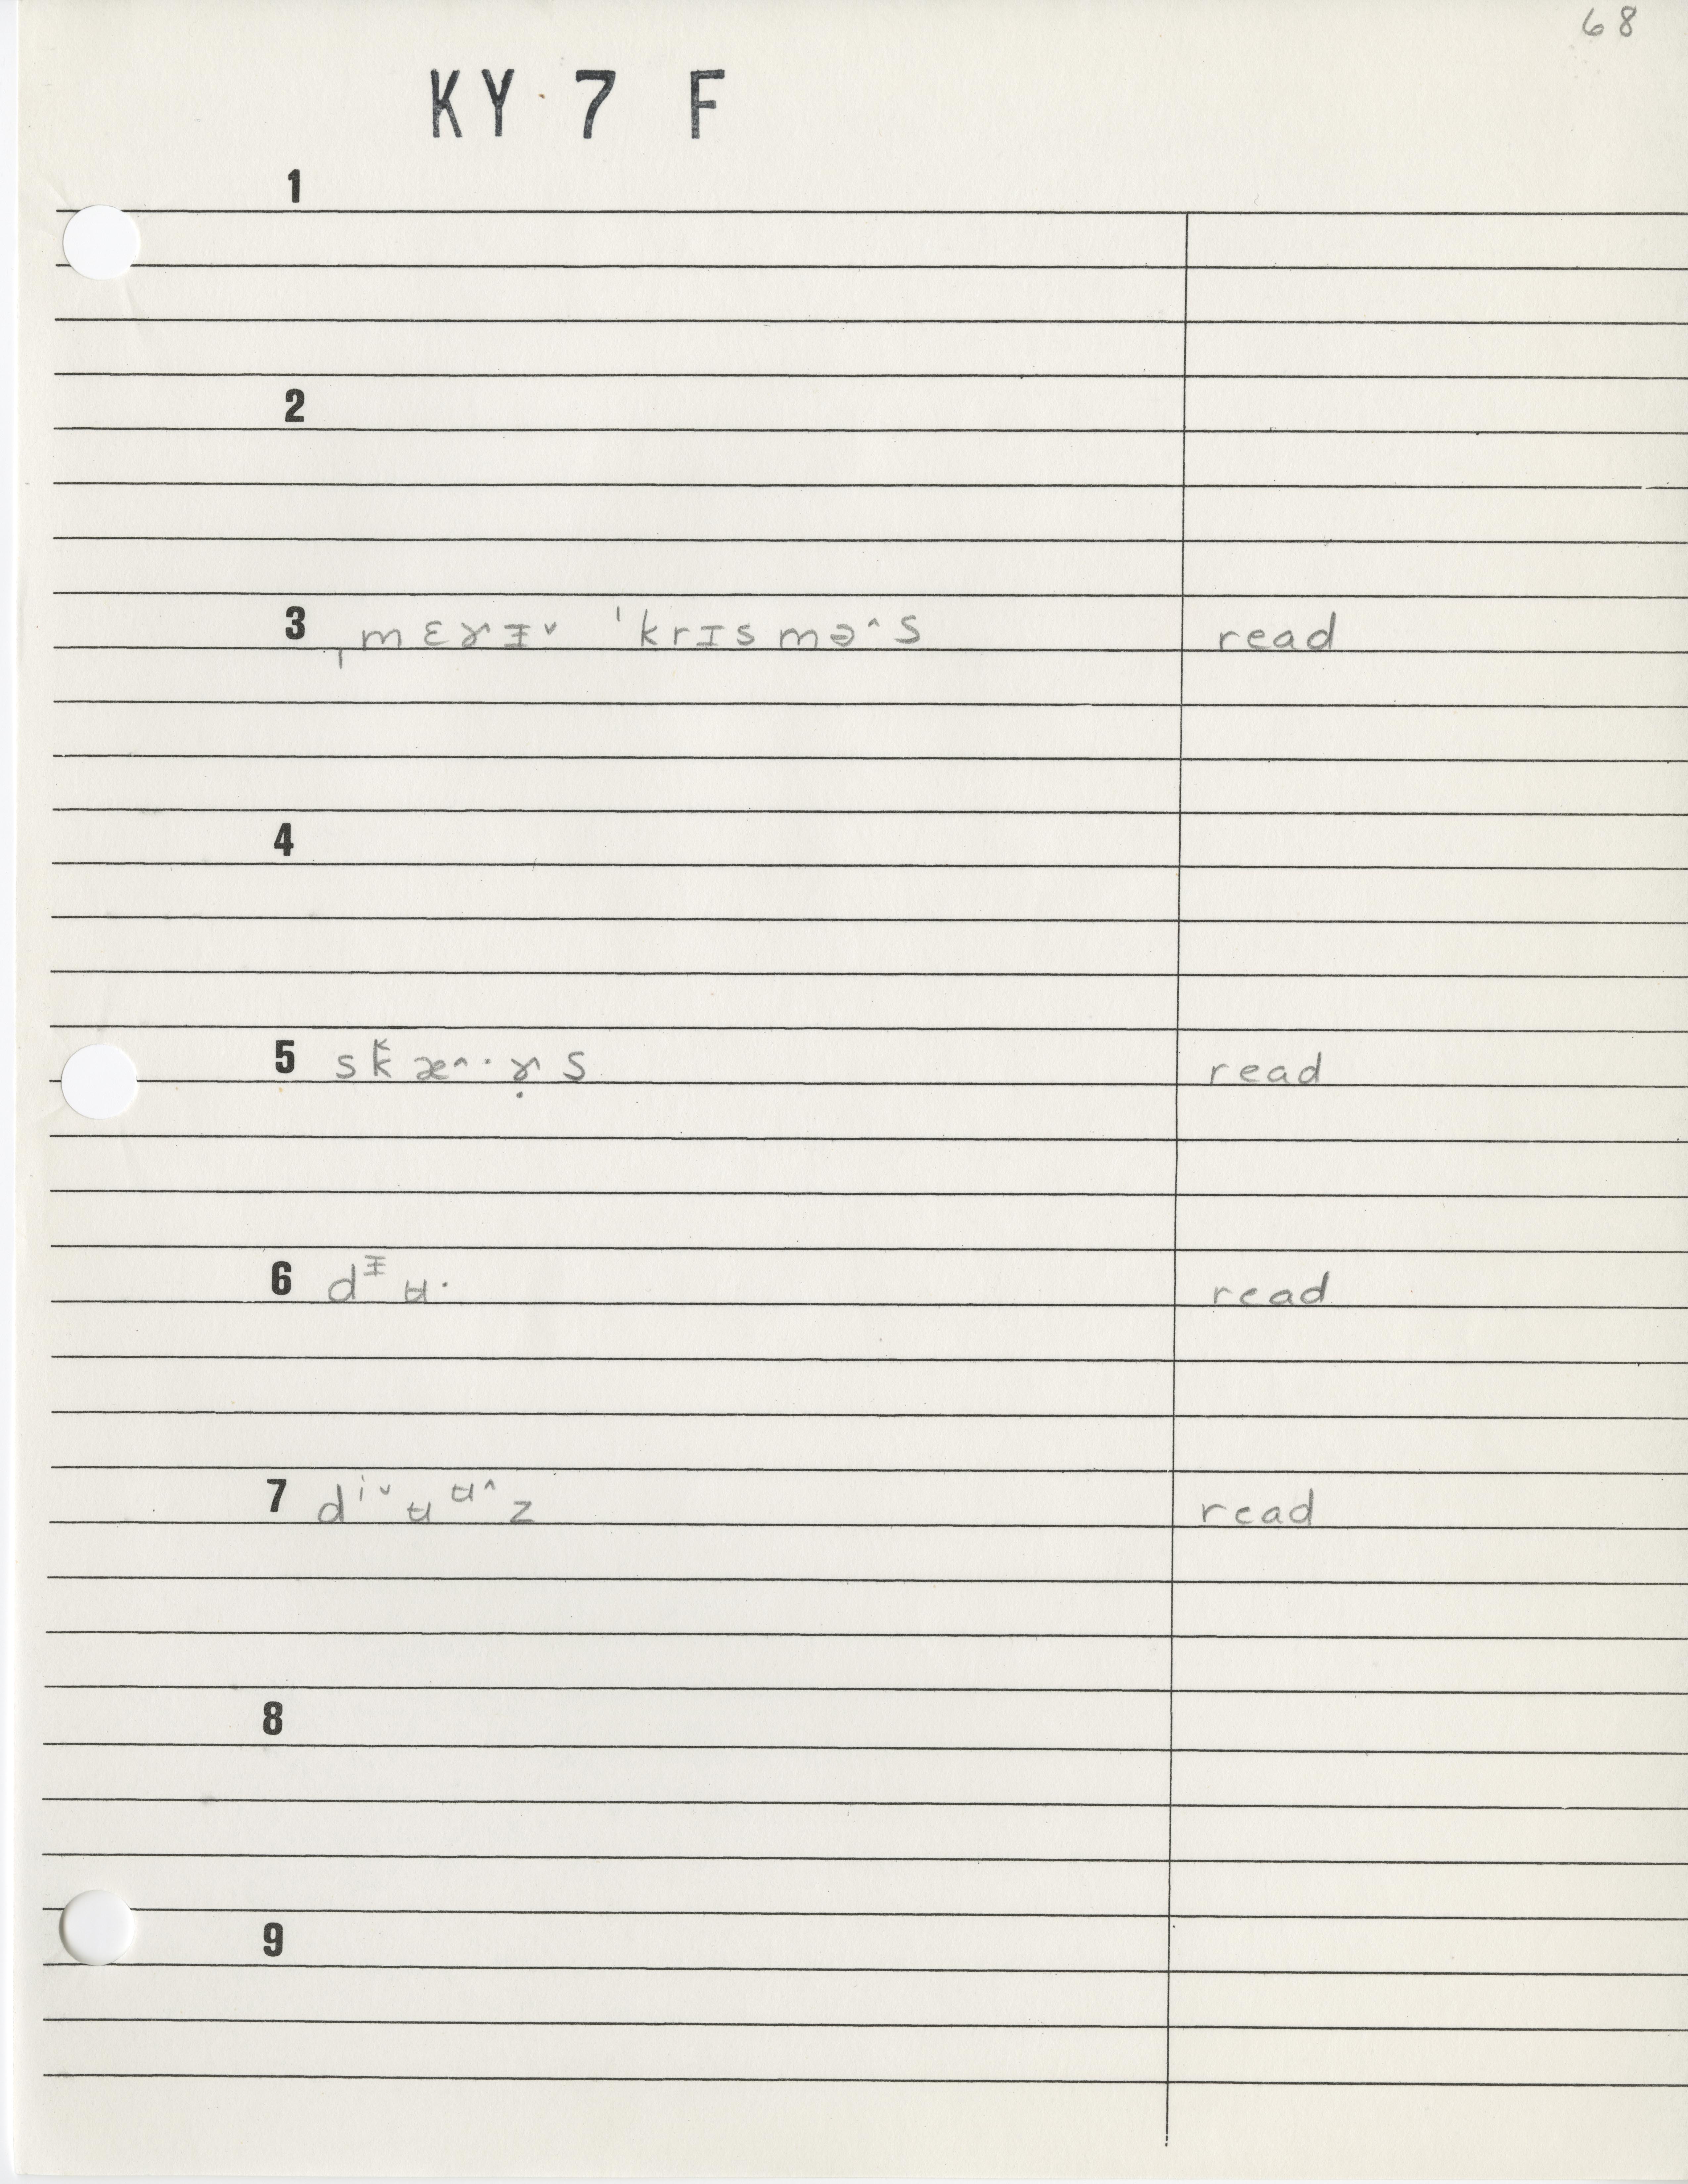 68
KY 7 F
1
2
3 ˌmɛɤᵻ˅ ˈkrɪsmə˄s read
4
5 sk̬æ˄·ɤ̣s read
6 dᵻʉ· read
7 dⁱ˅ʉᶶ˄z read
8
9